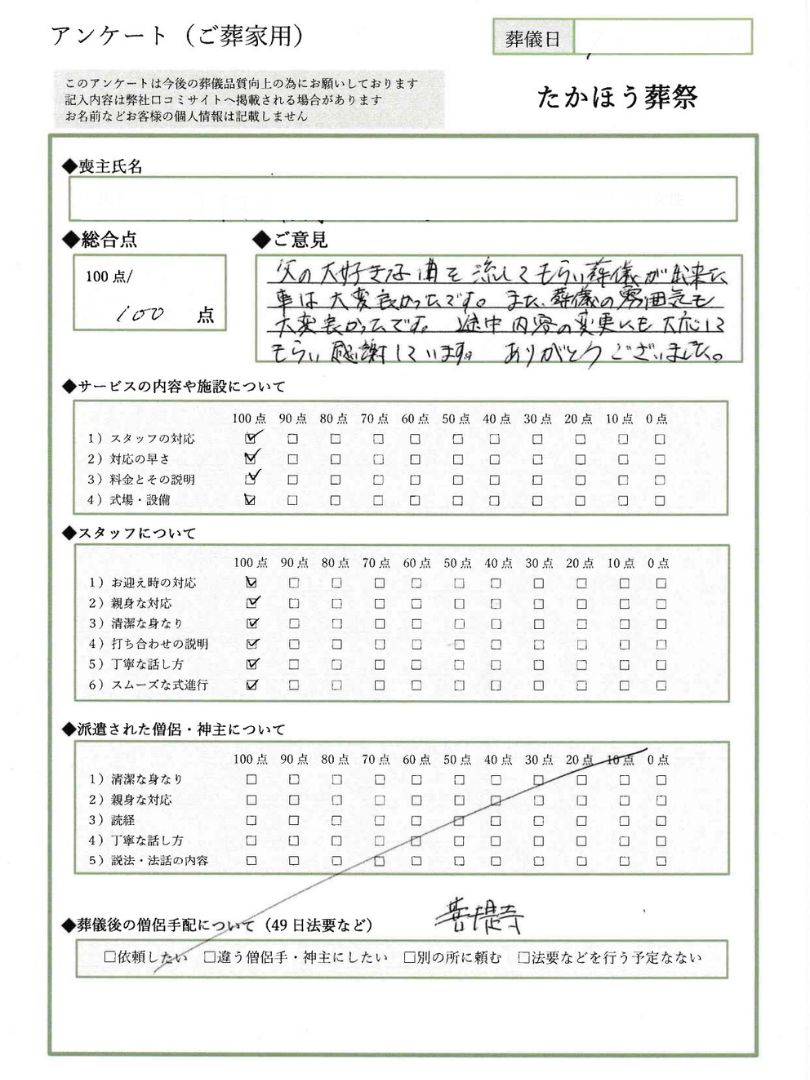 アンケート（ご葬家用）
葬儀日
このアンケートは今後の葬儀品質向上の為にお願いしております
記入内容は弊社口コミサイトへ掲載される場合があります
お名前などお客様の個人情報は記載しません
たかほう葬祭
◆喪主氏名
◆総合点
100点/
100 点
◆ご意見
父の大好きな曲を流してもらい葬儀が出来た
事は大変良かったです。また、葬儀の雰囲気も
大変良かったです。途中内容の変更にも対応して
もらい感謝しています。ありがとうございました。
◆サービスの内容や施設について
100点 90点 80点 70点 60点 50点 40点 30点 20点 10点 0点
1）スタッフの対応 ☑ □ □ □ □ □ □ □ □ □ □
2）対応の早さ ☑ □ □ □ □ □ □ □ □ □ □
3）料金とその説明 ☑ □ □ □ □ □ □ □ □ □ □
4）式場・設備 ☑ □ □ □ □ □ □ □ □ □ □
◆スタッフについて
100点 90点 80点 70点 60点 50点 40点 30点 20点 10点 0点
1）お迎え時の対応 ☑ □ □ □ □ □ □ □ □ □ □
2）親身な対応 ☑ □ □ □ □ □ □ □ □ □ □
3）清潔な身なり ☑ □ □ □ □ □ □ □ □ □ □
4）打ち合わせの説明 ☑ □ □ □ □ □ □ □ □ □ □
5）丁寧な話し方 ☑ □ □ □ □ □ □ □ □ □ □
6）スムーズな式進行 ☑ □ □ □ □ □ □ □ □ □ □
◆派遣された僧侶・神主について
100点 90点 80点 70点 60点 50点 40点 30点 20点 10点 0点
1）清潔な身なり □ □ □ □ □ □ □ □ □ □ □
2）親身な対応 □ □ □ □ □ □ □ □ □ □ □
3）読経 □ □ □ □ □ □ □ □ □ □ □
4）丁寧な話し方 □ □ □ □ □ □ □ □ □ □ □
5）説法・法話の内容 □ □ □ □ □ □ □ □ □ □ □
菩提寺
◆葬儀後の僧侶手配について（49日法要など）
□依頼したい □違う僧侶手・神主にしたい □別の所に頼む □法要などを行う予定なない